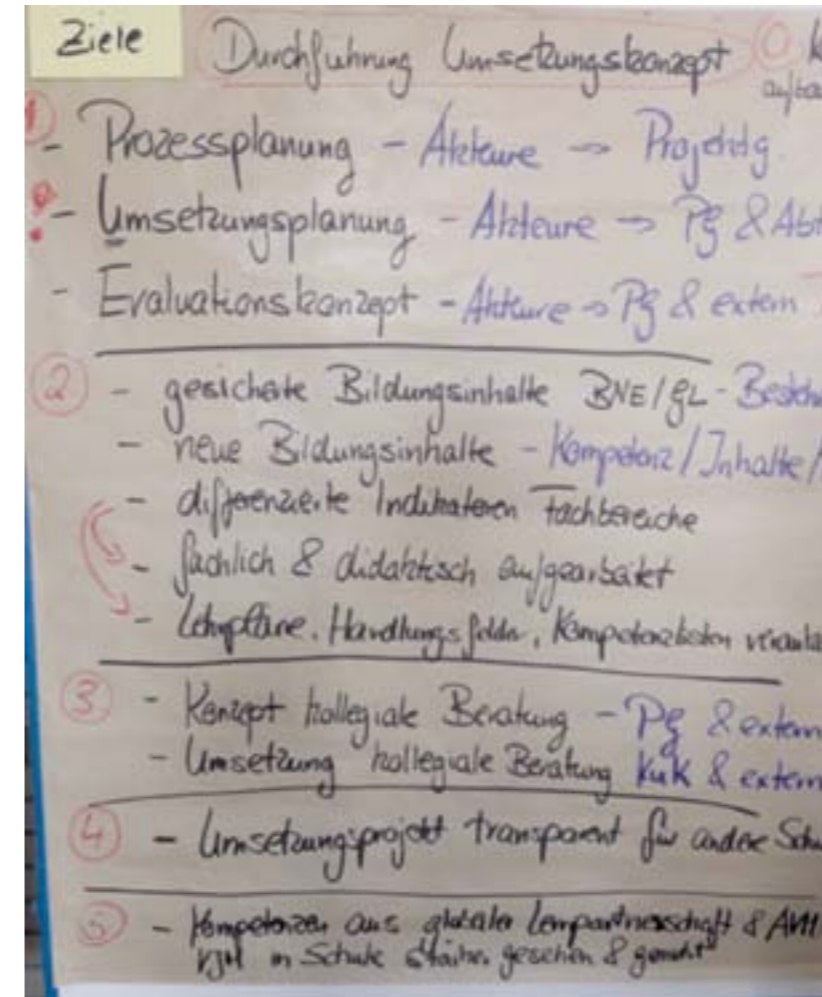 Ziele Durchführung Umsetzungskonzept
①
- Prozessplanung - Akteure → Projektg.
- Umsetzungsplanung - Akteure → Pg & Abt
- Evaluationskonzept - Akteure → Pg & extern
② - gesicherte Bildungsinhalte BNE/GL -
- neue Bildungsinhalte - Kompetenz/Inhalte/
- differenzierte Indikatoren Fachbereiche
- fachlich & didaktisch aufgearbeitet
- Lehrpläne, Handlungsfelder,
③ - Konzept kollegiale Beratung - Pg & extern
- Umsetzung kollegiale Beratung KuK & extern
④ - Umsetzungsprojekt transparent für andere
⑤ - Kompetenzen aus globaler Lernpartnerschaft &
in Schule stärker gesehen & genutzt